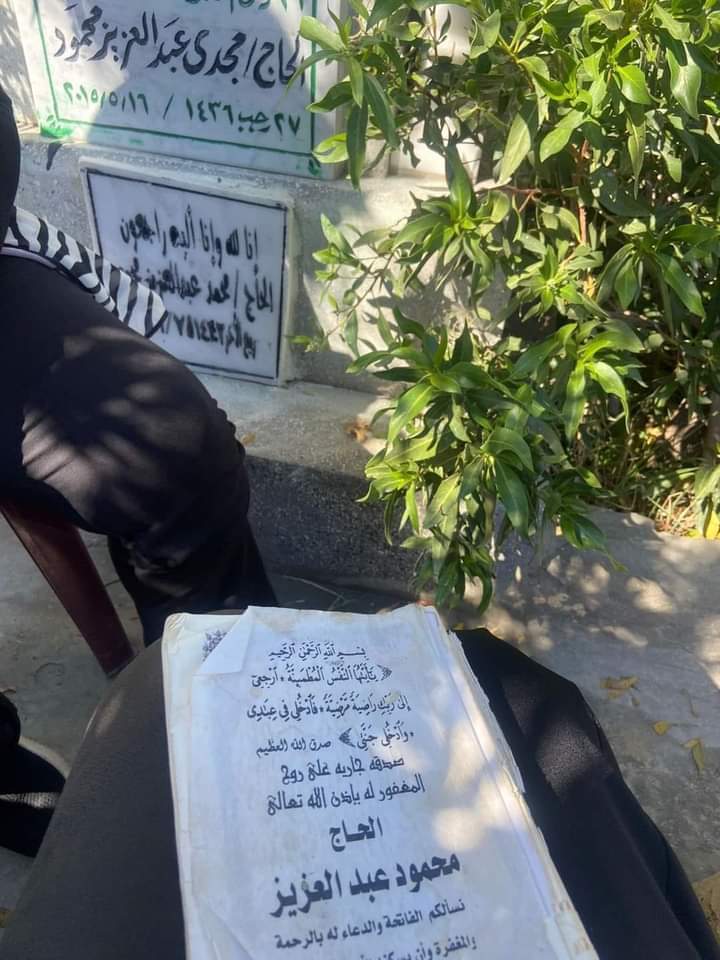 الحاج/مجدى عبد العزيز محمود
٢٧ رجب ١٤٣٦ / ٢٠١٥/٥/١٦
إنا لله وإنا إليه راجعون
الحاج / محمد عبدالعزيز
بسم الله الرحمن الرحيم
﴿يَٰٓأَيَّتُهَا ٱلنَّفْسُ ٱلْمُطْمَئِنَّةُ * ٱرْجِعِىٓ
إِلَىٰ رَبِّكِ رَاضِيَةً مَّرْضِيَّةً * فَٱدْخُلِى فِى عِبَٰدِى
* وَٱدْخُلِى جَنَّتِى﴾ صدق الله العظيم
صدقه جاريه على روح
المغفور له بإذن الله تعالى
الحـاج
محمود عبد العزيز
نسألكم الفاتحة والدعاء له بالرحمة
والمغفرة وأن